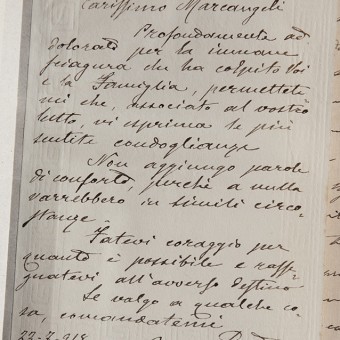 Carissimo Marcangeli
Profondamente ad
dolorato per la immane
sciagura che ha colpito Voi
e la Famiglia, permettete
mi che, associato al vostro
lutto, vi esprima le più
sentite condoglianze
Non aggiungo parole
di conforto, perchè a nulla
varrebbero in simili circo
stanze.
Fatevi coraggio per
quanto è possibile e rasse
gnatevi all'avverso destino
Se valgo a qualche co
sa, comandatemi
22-7-918